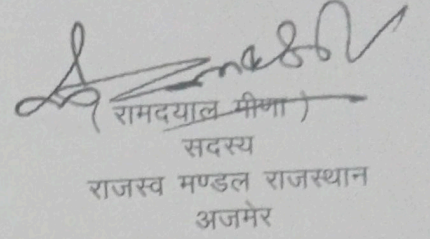 ( रामदयाल मीणा )
सदस्य
राजस्व मण्डल राजस्थान
अजमेर